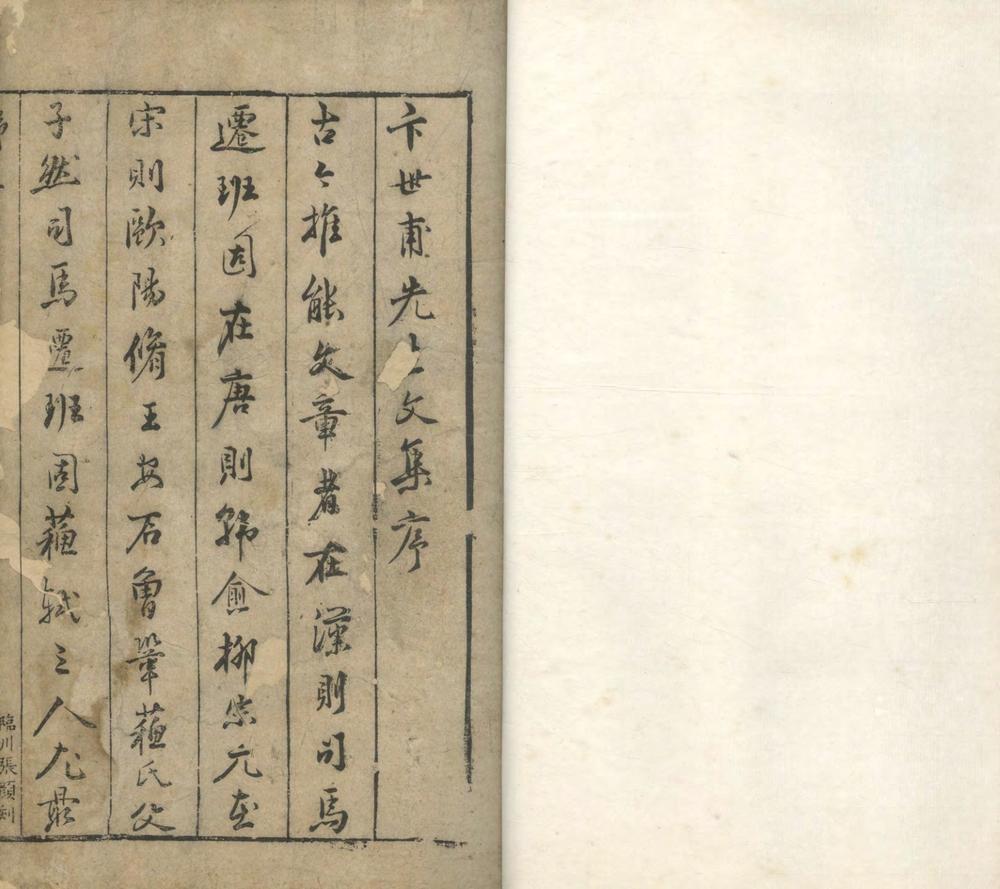 卞世甫先生文集序
古今推能文章者在漢則司馬
遷班固在唐則韓愈柳宗元在
宋則歐陽脩王安石曾鞏蘇氏父
子然司馬遷班固蘇軾三人尤最
臨川張刻